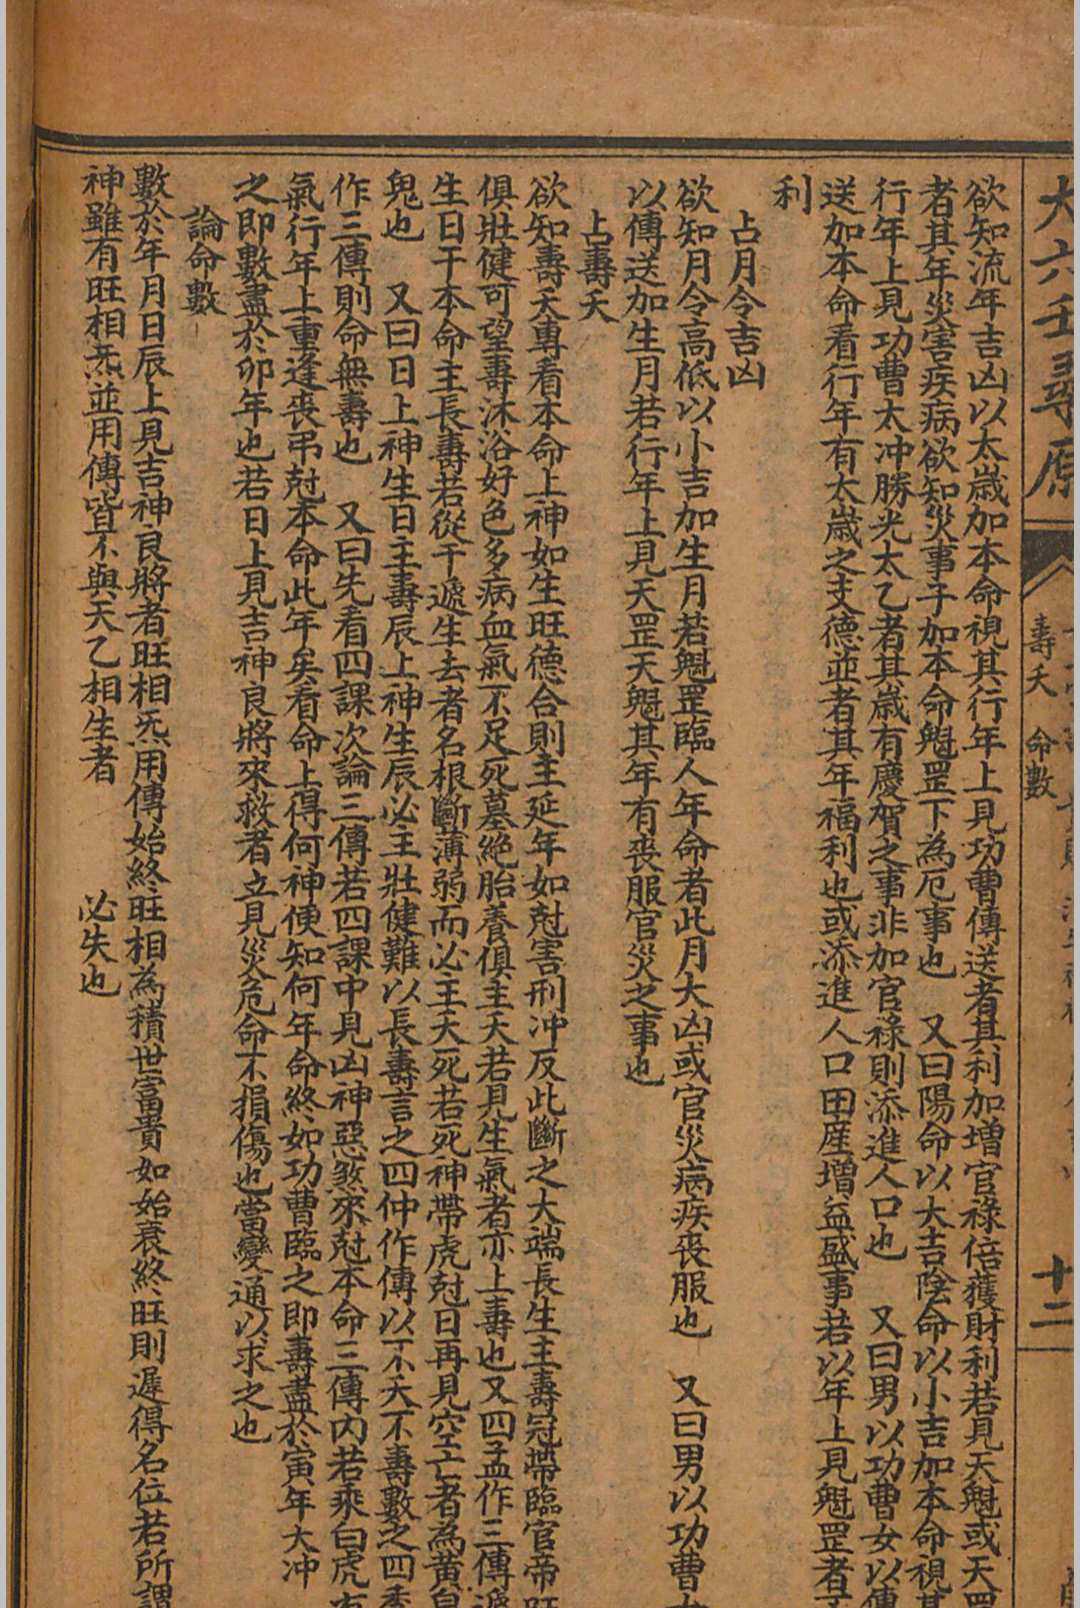 大六壬尋原
壽夭　命數
十二
欲知流年吉凶以太歲加本命視其行年上見功曹傳送者其利加增官祿倍獲財利若見天魁或天罡
者其年災害疾病欲知災事子加本命魁罡下為厄事也　又曰陽命以大吉陰命以小吉加本命視其
行年上見功曹太冲勝光太乙者其歲有慶賀之事非加官祿則添進人口也　又曰男以功曹女以傳
送加本命看行年有太歲之支德並者其年福利也或添進人口田産增益盛事若以年上見魁罡者
利
占月令吉凶
欲知月令高低以小吉加生月若魁罡臨人年命者此月大凶或官災病疾喪服也　又曰男以功曹
以傳送加生月若行年上見天罡天魁其年有喪服官災之事也
占壽夭
欲知壽夭專看本命上神如生旺德合則主延年如尅害刑冲反此斷之大端長生主壽冠帶臨官帝旺
俱壯健可望壽沐浴好色多病血氣不足死墓絶胎養俱主夭若見生氣者亦上壽也又四孟作三傳遞
生日干本命主長壽若從干遞生去者名根斷薄弱而必主夭死若死神帶虎尅日再見空亡者為黄白
鬼也　又曰日上神生日主壽辰上神生辰必主壯健難以長壽言之四仲作傳以不夭不壽數之四季
作三傳則命無壽也　又曰先看四課次論三傳若四課中見凶神惡煞來尅本命三傳内若乘白虎
氣行年上重逢喪弔尅本命此年矣看命上得何神便知何年命終如功曹臨之即壽盡於寅年大冲
之即數盡於卯年也若日上見吉神良將來救者立見災危命不損傷也當變通以求之也
論命數
數於年月日辰上見吉神良將者旺相炁用傳始終旺相為積世富貴如始衰終旺則遲得名位若所謂
神雖有旺相炁並用傳皆不與天乙相生者　　必失也